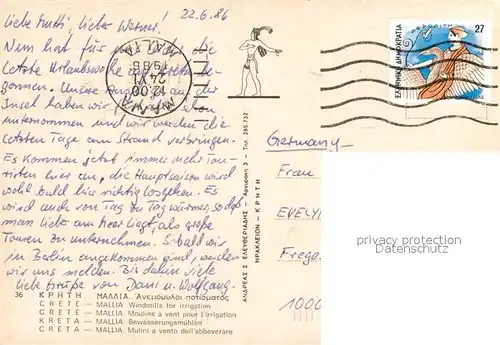 22.6.86
Liebe Mutti, lieber Werner!
Nun hat für die
letzte Urlaubswoche auf Kreta be-
gonnen. Unsere auf der
Insel haben wir schon
unternommen und wir werden die
letzten Tage am Strand verbringen.
Es kommen jetzt immer mehr Tou-
risten hier an, die Hauptsaison wird
wohl bald hier richtig losgehen. Es
wird auch von Tag zu Tag wärmer, so daß
man lieber am Meer liegt, als große
Touren zu unternehmen. Sobald wir
in Berlin angekommen sind, werden
wir uns melden. Bis dahin viele
liebe Grüße von Dani u. Wolfgang.
36 ΚΡΗΤΗ — ΜΑΛΛΙΑ. Ανεμόμυλοι ποτίσματος
CRETE — MALLIA: Windmills for irrigation
CRETE — MALLIA: Moulins à vent pour l'irrigation
KRETA — MALLIA: Bewässerungsmühlen
CRETA — MALLIA: Mulini a vento dell'abbeverare
ΑΝΔΡΕΑΣ Σ. ΕΛΕΥΘΕΡΙΑΔΗΣ - Αργυράκη 3 - Τηλ. 285.732
ΗΡΑΚΛΕΙΟΝ - ΚΡΗΤΗ
ΜΑΛΙΑ
12.00
24 VI
1986
ΕΛΛΗΝΙΚΗ ΔΗΜΟΚΡΑΤΙΑ
27
Germany
Frau
EVELY
Frege
1000
privacy protection
Datenschutz